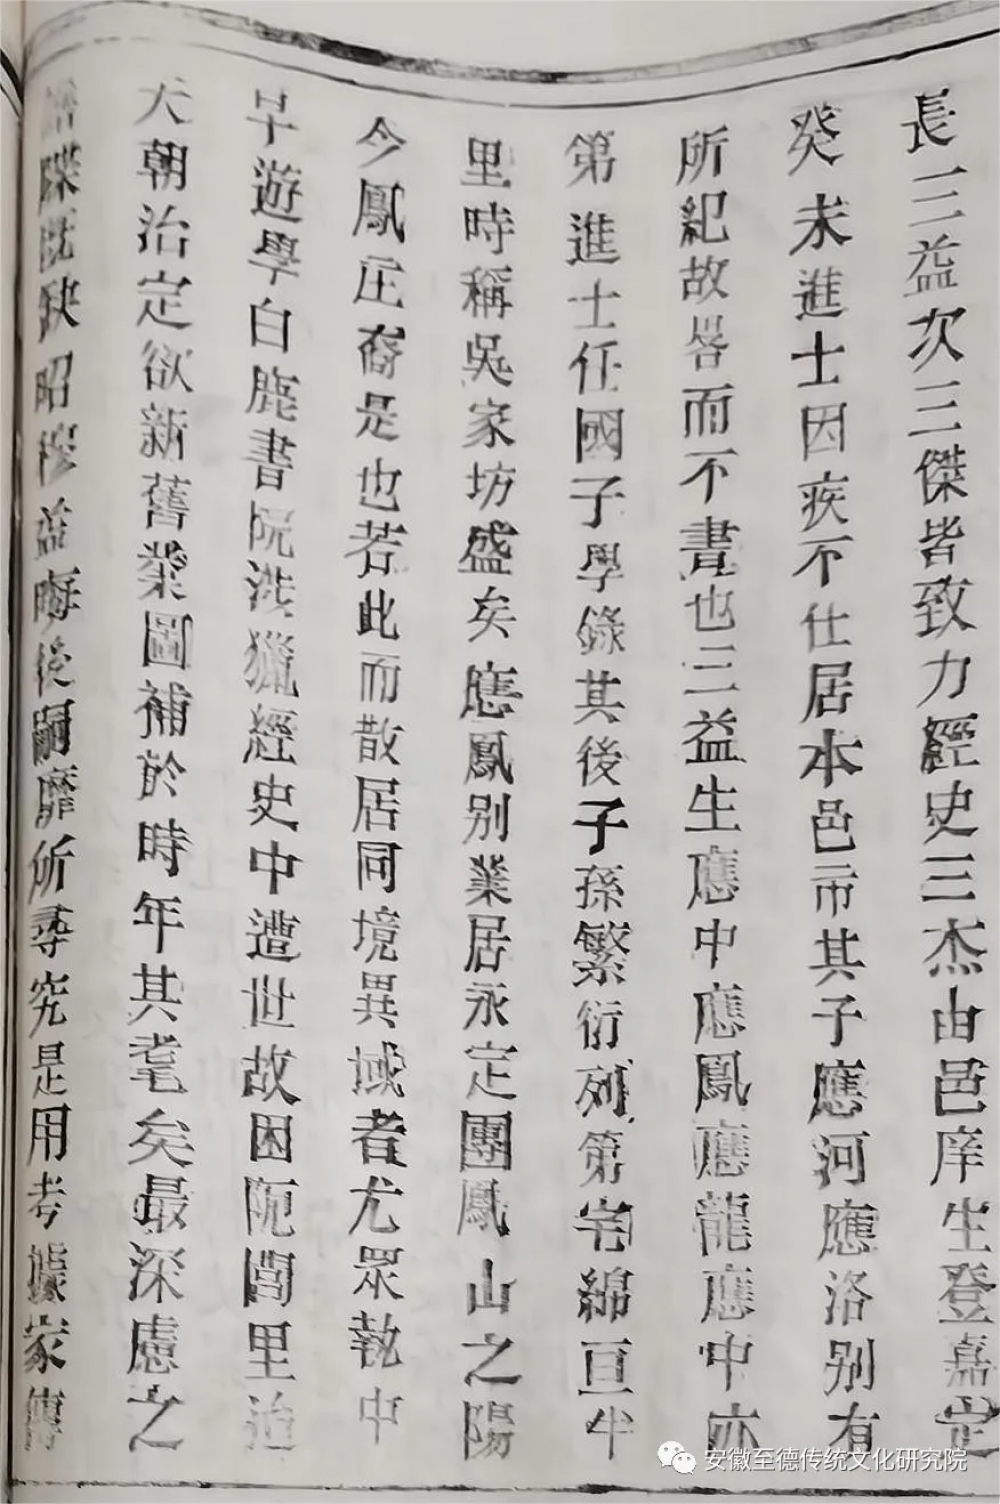 長三益次三傑皆致力經史三杰由邑庠生登嘉定
癸未進士因疾不仕居本邑市其子應河應洛别有
所紀故畧而不書也三益生應中應鳳應龍應中亦
第進士任國子學錄其後子孫繁衍列第宅綿亘半
里時稱吳家坊盛矣應鳳别業居永定團鳳山之陽
今鳳庄裔是也若此而散居同境異域者尤眾執中
早遊學白鹿書院涉獵經史中遭世故困阨閭里迨
大朝治定欲新舊業圖補於時年其耄矣最深慮之
譜牒既缺昭穆益晦後嗣靡所尋究是用考據家傳
安徽至德传统文化研究院